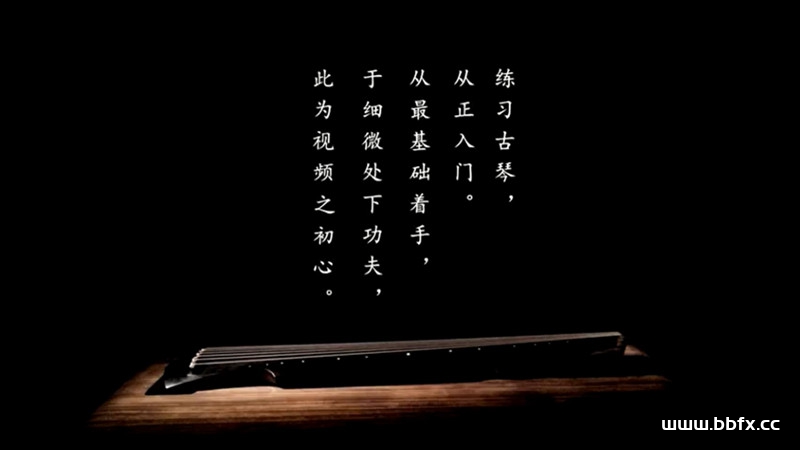 练习古琴，
从正入门。
从最基础着手，
于细微处下功夫，
此为视频之初心。
www.bbfx.cc